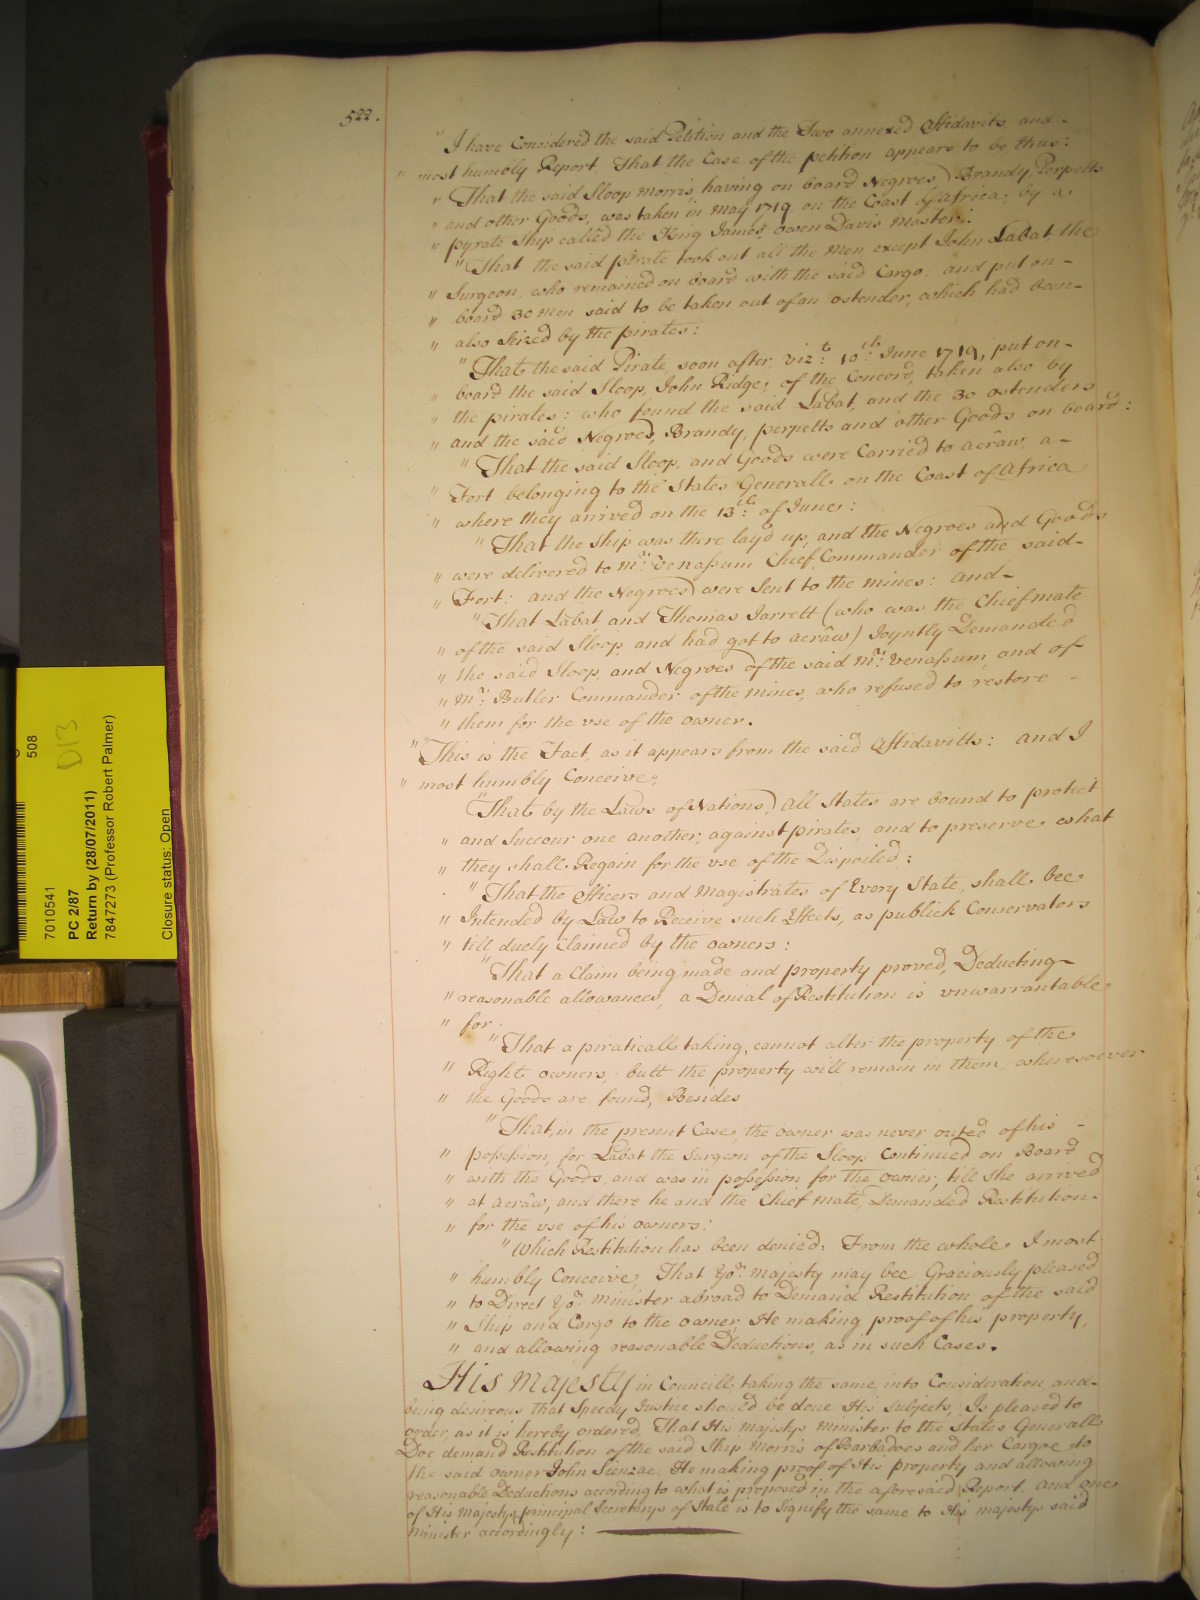 522.
" I have Considered the said Petition and the Two annexed Affidavits, and -
" most humbly Report, That the Case of the petition appears to be thus:
" That the said Sloop Morris, having on board Negroes, Brandy, Perpetts
" and other Goods, was taken in May 1719 on the Coast of Africa, by a
" pyrate Ship called the King James, Owen Davis Master:
" That the said pirate took out all the Men except John Labat the
" Surgeon, who remained on board with the said Cargo, and put on -
" board 30 Men said to be taken out of an Ostender, which had been -
" also Seized by the pirates:
" That the said Pirate, soon after, vizt. 10th June 1719, put on -
" board the said Sloop, John Ridge, of the Concord, taken also by
" the pirates: who found the said Labat, and the 30 Ostenders
" and the said Negroes, Brandy, perpetts and other Goods on board:
" That the said Sloop, and Goods were Carried to Acrâw, a -
" Fort belonging to the States Generall, on the Coast of Africa
" where they arrived on the 13th: of June:
" That the Ship was there lay'd up, and the Negroes and Goods
" were delivered to Mr: Venassum Chief Commander of the said -
" Fort: and the Negroes were Sent to the mines: and -
" That Labat and Thomas Jarrett (who was the Chief mate
" of the said Sloop, and had got to acrâw) Joyntly Demanded
" the said Sloop, and Negroes of the said Mr: Venassum, and of
" Mr: Butler Commander of the mines, who refused to restore -
" them for the vse of the owner.
" This is the Fact, as it appears from the said Affidavitts: and I
" most humbly Conceive,
" That by the Laws of Nations, all States are bound to protect
" and Succour one another, against pirates, and to preserve what
" they shall Regain for the vse of the Dispoiled:
" That the Officers and Magistrates of Every State, shall bee
" Intended by Law to Receive such Effects, as publick Conservators
" till duely Claimed by the owners:
" That a Claim being made and property proved, Deducting -
" reasonable allowances, a Denial of Restitution is vnwarrantable
" for.
" That a piraticall taking, cannot alter the property of the
" Right owners, butt the property will remain in them, wheresoever
" the Goods are found, Besides
" That, in the present Case, the owner was never outed of his -
" possession, for Labat the Surgeon of the Sloop Continued on Board
" with the Goods, and was in possession for the owner, till she arrived
" at acrâw, and there he and the Chief mate, Demanded Restitution -
" for the vse of his owners:
" Which Restitution has been denied: From the whole, I most
" humbly Conceive, That Yor. Majesty may bee Graciously pleased
" to Direct Yor. Minister abroad to Demand Restitution of the said
" Ship and Cargo to the owner, He making proof of his property,
" and allowing reasonable Deductions, as in such Cases.
His Majesty in Councill, taking the same into Consideration and -
being desireous that Speedy Justice should be done His Subjects, Is pleased to
order, as it is hereby ordered, That His Majestys Minister to the States Generall
Doe demand Restitution of the said Ship Morris of Barbadoes and her Cargoe to
the said owner John Sienzac, He making proof of His property and allowing
reasonable Deductions according to what is proposed in the aforesaid Report. And one
of His Majestys principal Secretarys of State is to Signify the same to His majestys said
Minister accordingly:
508
D13
7010541
PC 2/87
Return by (28/07/2011)
7847273 (Professor Robert Palmer)
Closure status: Open